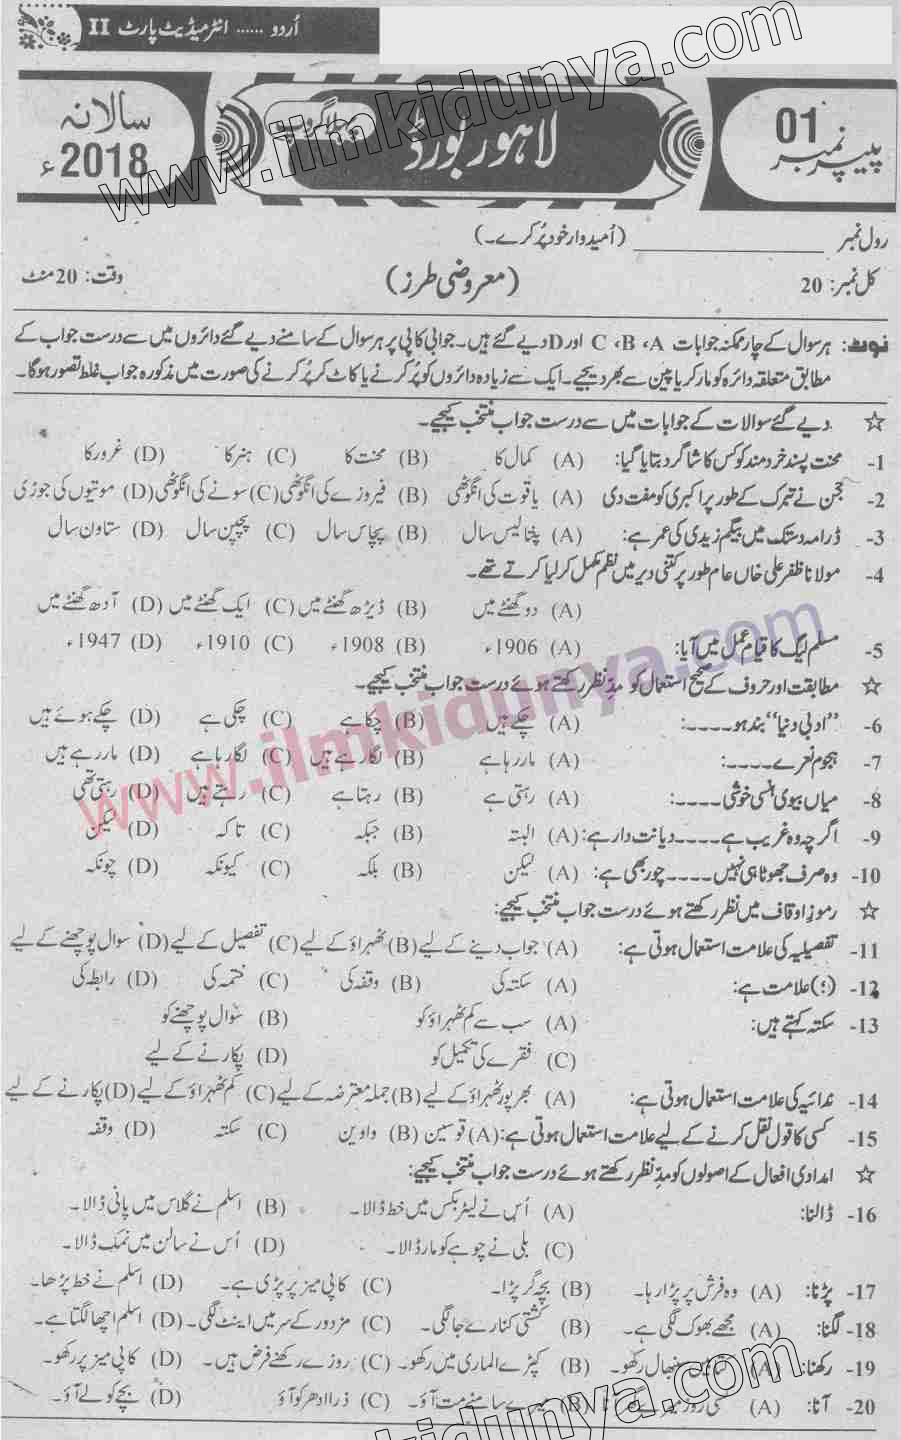 اُردو ...... انٹرمیڈیٹ پارٹ II
پیپر نمبر 01
لاہور بورڈ
پہلا گروپ
سالانہ 2018ء
رول نمبر ____________ (اُمیدوار خود پُر کرے۔)
کل نمبر: 20 (معروضی طرز) وقت: 20 منٹ
نوٹ: ہر سوال کے چار ممکنہ جوابات A، B، C اور D دیے گئے ہیں۔ جوابی کاپی پر ہر سوال کے سامنے دیے گئے دائروں میں سے درست جواب کے
مطابق متعلقہ دائرہ کو مارکر یا پین سے بھر دیجیے۔ ایک سے زیادہ دائروں کو پُر کرنے یا کاٹ کر پُر کرنے کی صورت میں مذکورہ جواب غلط تصور ہوگا۔
☆ دیے گئے سوالات کے جوابات میں سے درست جواب منتخب کیجیے۔
1- محنت پسند خردمند کو کس کا شاگرد بتایا گیا: (A) کمال کا (B) محنت کا (C) ہنر کا (D) غرور کا
2- حجن نے تبرک کے طور پر اکبری کو مفت دی (A) یاقوت کی انگوٹھی (B) فیروزے کی انگوٹھی (C) سونے کی انگوٹھی (D) موتیوں کی جوڑی
3- ڈرامہ دستک میں بیگم زیدی کی عمر ہے: (A) پنتالیس سال (B) پچاس سال (C) پچپن سال (D) ستاون سال
4- مولانا ظفر علی خاں عام طور پر کتنی دیر میں نظم مکمل کر لیا کرتے تھے۔
(A) دو گھنٹے میں (B) ڈیڑھ گھنٹے میں (C) ایک گھنٹے میں (D) آدھ گھنٹے میں
5- مسلم لیگ کا قیام عمل میں آیا: (A) 1906ء (B) 1908ء (C) 1910ء (D) 1947ء
☆ مطابقت اور حروف کے صحیح استعمال کو مدِنظر رکھتے ہوئے درست جواب منتخب کیجیے۔
6- "ادبی دنیا" بند ہو۔۔۔۔: (A) چکے ہیں (B) چکا ہے (C) چکی ہے (D) چکے ہوئے ہیں
7- ہجوم نعرے۔۔۔۔: (A) مار رہا ہے (B) لگا رہے ہیں (C) لگا رہا ہے (D) مار رہے ہیں
8- میاں بیوی ہنسی خوشی۔۔۔۔: (A) رہتی ہے (B) رہتا ہے (C) رہتے ہیں (D) رہتی تھی
9- اگرچہ وہ غریب ہے۔۔۔۔ دیانت دار ہے: (A) البتہ (B) جبکہ (C) تاکہ (D) لیکن
10- وہ صرف جھوٹا ہی نہیں۔۔۔۔ چور بھی ہے: (A) لیکن (B) بلکہ (C) کیونکہ (D) چونکہ
☆ رموزِ اوقاف میں نظر رکھتے ہوئے درست جواب منتخب کیجیے:
11- تفصیلیہ کی علامت استعمال ہوتی ہے: (A) جواب دینے کے لیے (B) ٹھہراؤ کے لیے (C) تفصیل کے لیے (D) سوال پوچھنے کے لیے
12- (؛) علامت ہے: (A) سکتہ کی (B) وقفہ کی (C) ختمہ کی (D) رابطہ کی
13- سکتہ کہتے ہیں: (A) سب سے کم ٹھہراؤ کو (B) سوال پوچھنے کو
(C) فقرے کی تکمیل کو (D) پکارنے کے لیے
14- ندائیہ کی علامت استعمال ہوتی ہے: (A) بھرپور ٹھہراؤ کے لیے (B) جملہ معترضہ کے لیے (C) کم ٹھہراؤ کے لیے (D) پکارنے کے لیے
15- کسی کا قول نقل کرنے کے لیے علامت استعمال ہوتی ہے: (A) قوسین (B) واوین (C) سکتہ (D) وقفہ
☆ امدادی افعال کے اصولوں کو مدِنظر رکھتے ہوئے درست جواب منتخب کیجیے:
16- ڈالنا: (A) اُس نے لیٹر بکس میں خط ڈالا۔ (B) اسلم نے گلاس میں پانی ڈالا۔
(C) بلی نے چوہے کو مار ڈالا۔ (D) اُس نے سالن میں نمک ڈالا۔
17- پڑنا: (A) وہ فرش پر پڑا رہا۔ (B) بچہ گر پڑا۔ (C) کاپی میز پر پڑی ہے۔ (D) اسلم نے خط پڑھا۔
18- لگنا: (A) مجھے بھوک لگی ہے۔ (B) کشتی کنارے جا لگی۔ (C) مزدور کے سر میں اینٹ لگی۔ (D) اسلم اچھا لگتا ہے۔
19- رکھنا: (A) سنبھال رکھو۔ (B) کپڑے الماری میں رکھو۔ (C) روزے رکھنے فرض ہیں۔ (D) کاپی میز پر رکھو۔
20- آنا: (A) کسی روز میرے گھر (B) میرے سامنے مت آؤ۔ (C) ذرا ادھر کو آؤ (D) بچے کو لے آؤ۔
www.ilmkidunya.com
www.ilmkidunya.com
www.ilmkidunya.com